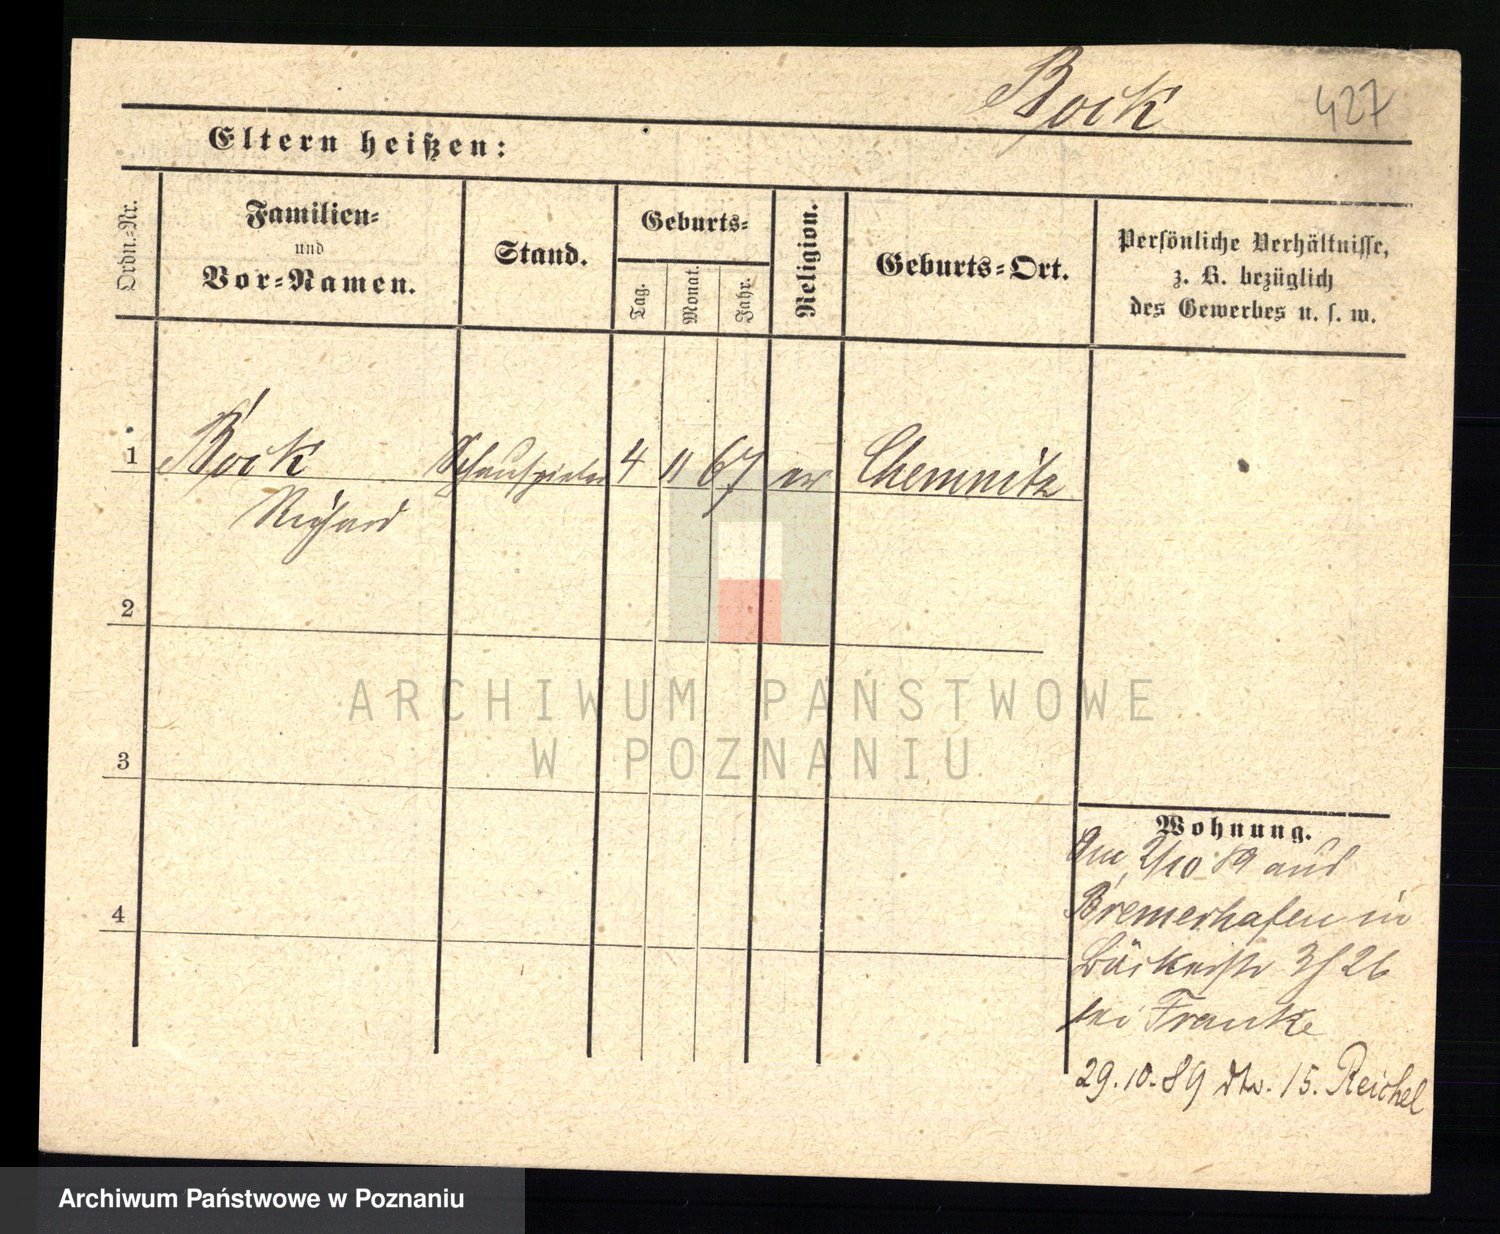 Bock
427
Eltern heißen:
Ordn.=Nr.
Familien=
und
Vor=Namen.
Stand.
Geburts=
Tag.
Monat.
Jahr.
Religion.
Geburts=Ort.
Persönliche Verhältnisse,
z. B. bezüglich
des Gewerbes u. s. w.
1 Bock Schauspieler 4 11 67 ev Chemnitz
Richard
2
3
4
Wohnung.
Am 2/10 89 aus
Bremerhafen in
Bäckerstr 26
bei Franke
29.10.89 dto. 15. Reichel
ARCHIWUM PAŃSTWOWE
W POZNANIU
Archiwum Państwowe w Poznaniu